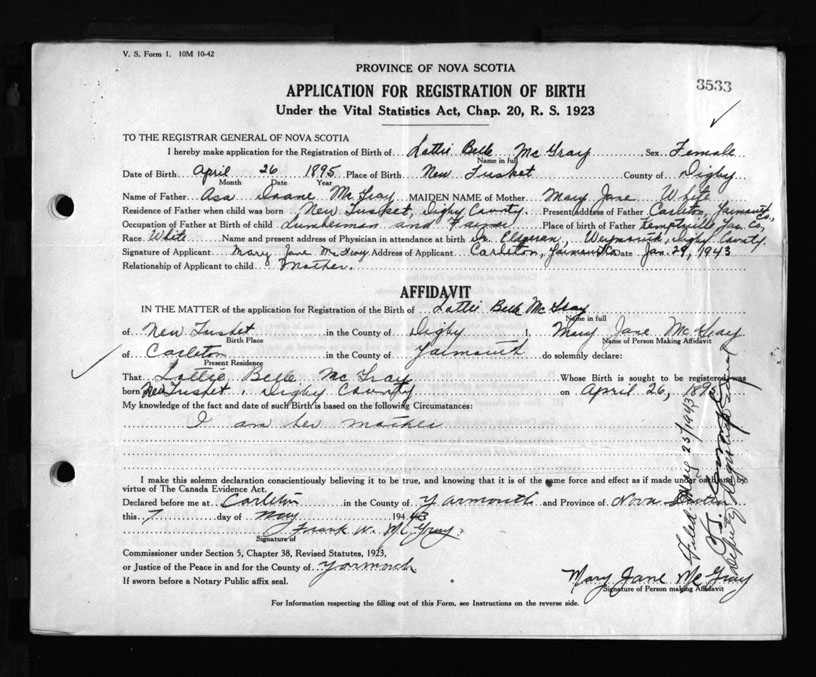 V. S. Form 1. 10M 10-42
PROVINCE OF NOVA SCOTIA
3533
APPLICATION FOR REGISTRATION OF BIRTH
Under the Vital Statistics Act, Chap. 20, R. S. 1923
TO THE REGISTRAR GENERAL OF NOVA SCOTIA
I hereby make application for the Registration of Birth of Lottie Belle McGray Sex Female
Name in full
Date of Birth April 26 1895 Place of Birth New Tusket County of Digby
Month Date Year
Name of Father Asa Doane McGray MAIDEN NAME of Mother Mary Jane White
Residence of Father when child was born New Tusket, Digby County. Present address of Father Carleton, Yarmouth Co.
Occupation of Father at Birth of child Lumberman and Farmer Place of birth of Father Kemptville Yar. Co,
Race White Name and present address of Physician in attendance at birth Dr. Weymouth, Digby County.
Signature of Applicant Mary Jane McGray Address of Applicant Carleton, Yarmouth Co Date Jan. 29, 1943
Relationship of Applicant to child Mother.
AFFIDAVIT
IN THE MATTER of the application for Registration of the Birth of Lottie Belle McGray
Name in full
of New Tusket in the County of Digby I, Mary Jane McGray
Birth Place Name of Person Making Affidavit
of Carleton in the County of Yarmouth do solemnly declare:
Present Residence
That Lottie Belle McGray Whose Birth is sought to be registered was
born New Tusket, Digby County on April 26, 1895
My knowledge of the fact and date of such Birth is based on the following Circumstances:
I am her mother
I make this solemn declaration conscientiously believing it to be true, and knowing that it is of the same force and effect as if made under oath and by
virtue of The Canada Evidence Act.
Declared before me at Carleton in the County of Yarmouth and Province of Nova Scotia
this 7 day of May 1943
Frank W. McGray.
Signature of
Commissioner under Section 5, Chapter 38, Revised Statutes, 1923,
or Justice of the Peace in and for the County of Yarmouth
If sworn before a Notary Public affix seal.
Mary Jane McGray
Signature of Person making Affidavit
For Information respecting the filling out of this Form, see Instructions on the reverse side.
Filed 25/1943
Deputy Registrar General